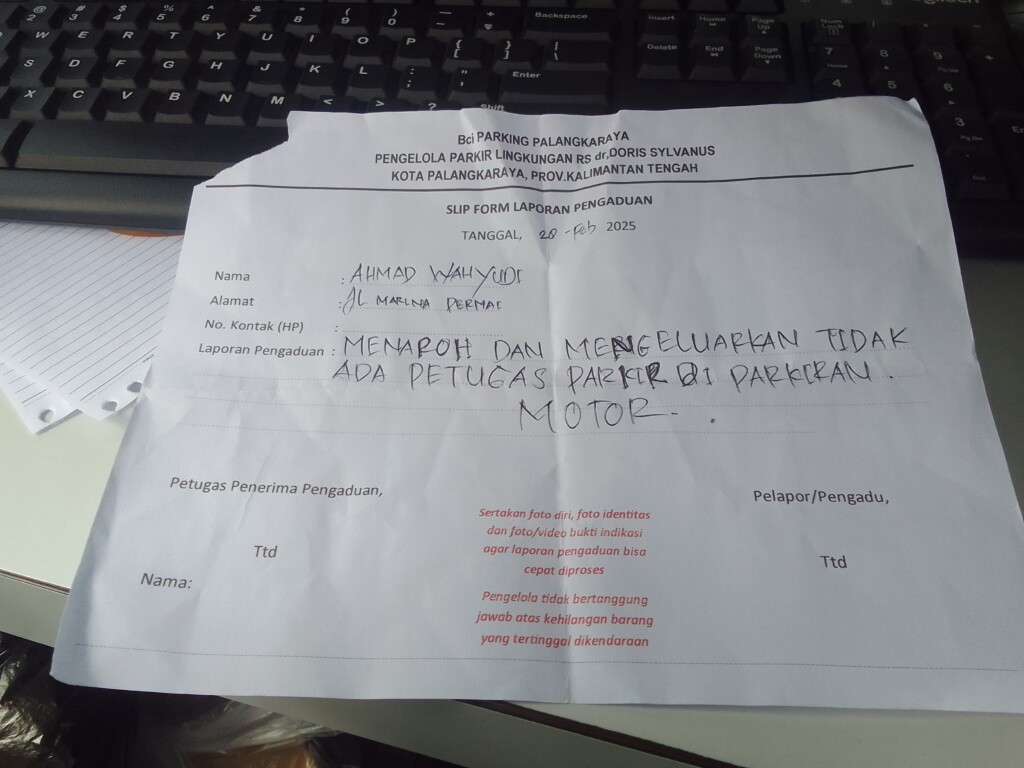 Bci PARKING PALANGKARAYA
PENGELOLA PARKIR LINGKUNGAN RS dr,DORIS SYLVANUS
KOTA PALANGKARAYA, PROV.KALIMANTAN TENGAH
SLIP FORM LAPORAN PENGADUAN
TANGGAL, 20 -Feb 2025
Nama : AHMAD WAHYUDI
Alamat : JL MARINA PERMAI
No. Kontak (HP) :
Laporan Pengaduan : MENAROH DAN MENGELUARKAN TIDAK
ADA PETUGAS PARKIR DI PARKIRAN.
MOTOR.
Petugas Penerima Pengaduan,
Ttd
Nama:
Sertakan foto diri, foto identitas
dan foto/video bukti indikasi
agar laporan pengaduan bisa
cepat diproses
Pengelola tidak bertanggung
jawab atas kehilangan barang
yang tertinggal dikendaraan
Pelapor/Pengadu,
Ttd
@ # $ % ^ & * ( ) — +
2 3 4 5 6 7 8 9 0 - =
Backspace
W E R T Y U I O P { [ } ] | \
S D F G H J K L : ; " ' Enter
X C V B N M < > ? Shift
Insert Home Page Up
Delete End Page Down
Num Lock
7 8 9
Home PgUp
4 5 6
3
PgDn